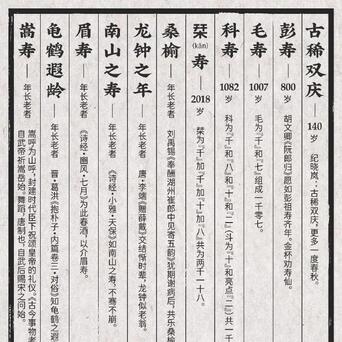 古稀双庆 140岁 纪晓岚:古稀双庆,更多一度春秋。
彭寿——800岁 胡文卿《阮郎归》愿如彭祖寿齐年,金杯劝寿仙。
毛寿——1007岁 毛为『千』和『七』组成一千零七。
科寿——1082岁 科为『千』和『八』和『十』和『二』(斗为『十』和亮点『二』)共一千
栞(kān)寿 2018岁 栞为『千』加『千』加『十』加『八』共为两千一十八。
桑榆——年长老者 刘禹锡《奉酬湖州崔郎中见寄五韵》犹期谢病后,共乐桑榆
龙钟之年——年长老者 唐·李端《赠薛戴》交结惭时辈,龙钟似老翁。
南山之寿——年长老者 《诗经·小雅·天保》如南山之寿,不骞不崩。
眉寿——年长老者 《诗经·豳风·七月》为此春酒,以介眉寿。
龟鹤遐龄——年长老者 晋·葛洪《抱朴子·内篇卷三·对俗》知龟鹤之遐
嵩寿——年长老者 嵩呼为山呼,封建时代臣下祝颂皇帝的礼仪。《古今事物考
自武帝祈嵩岳始。舞蹈,唐制也,自武后赐宋之问始。